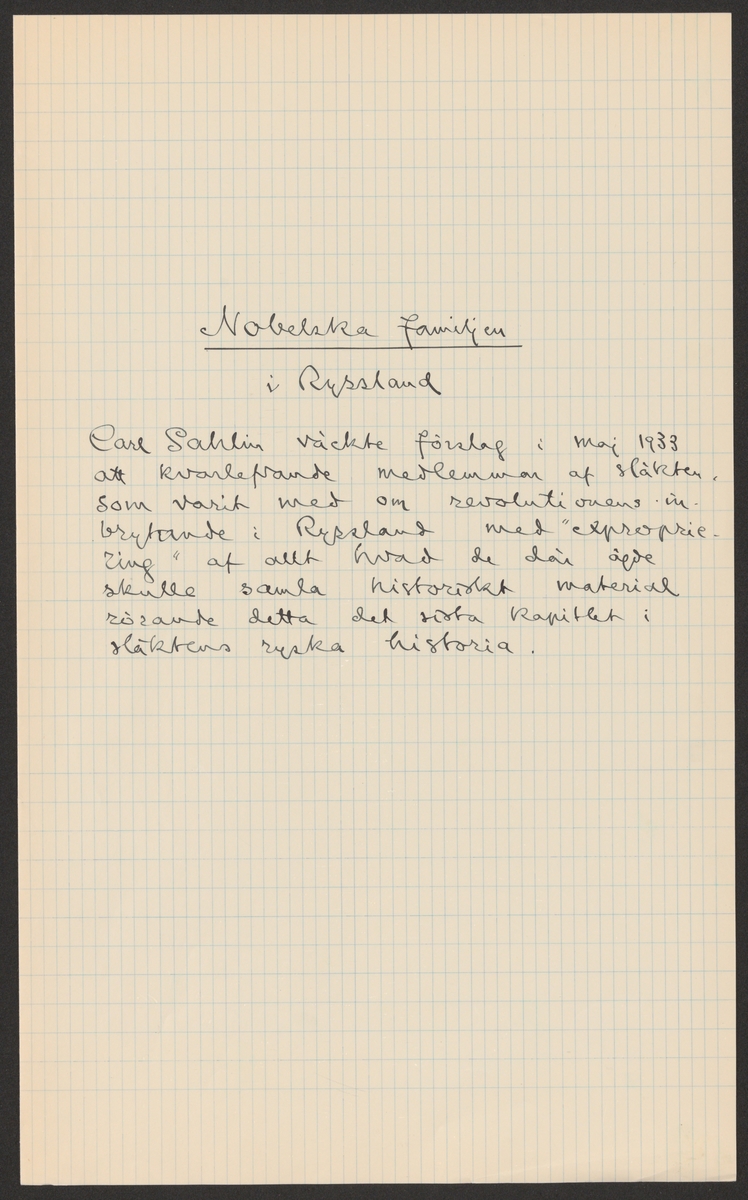 Nobelska familjen
i Ryssland
Carl Sahlin väckte förslag i maj 1933
att kvarlefvande medlemmar af släkten,
som varit med om revolutionens in-
brytande i Ryssland med "exproprie-
ring" af allt hvad de där ägde
skulle samla historiskt material
rörande detta det sista kapitlet i
släktens ryska historia.